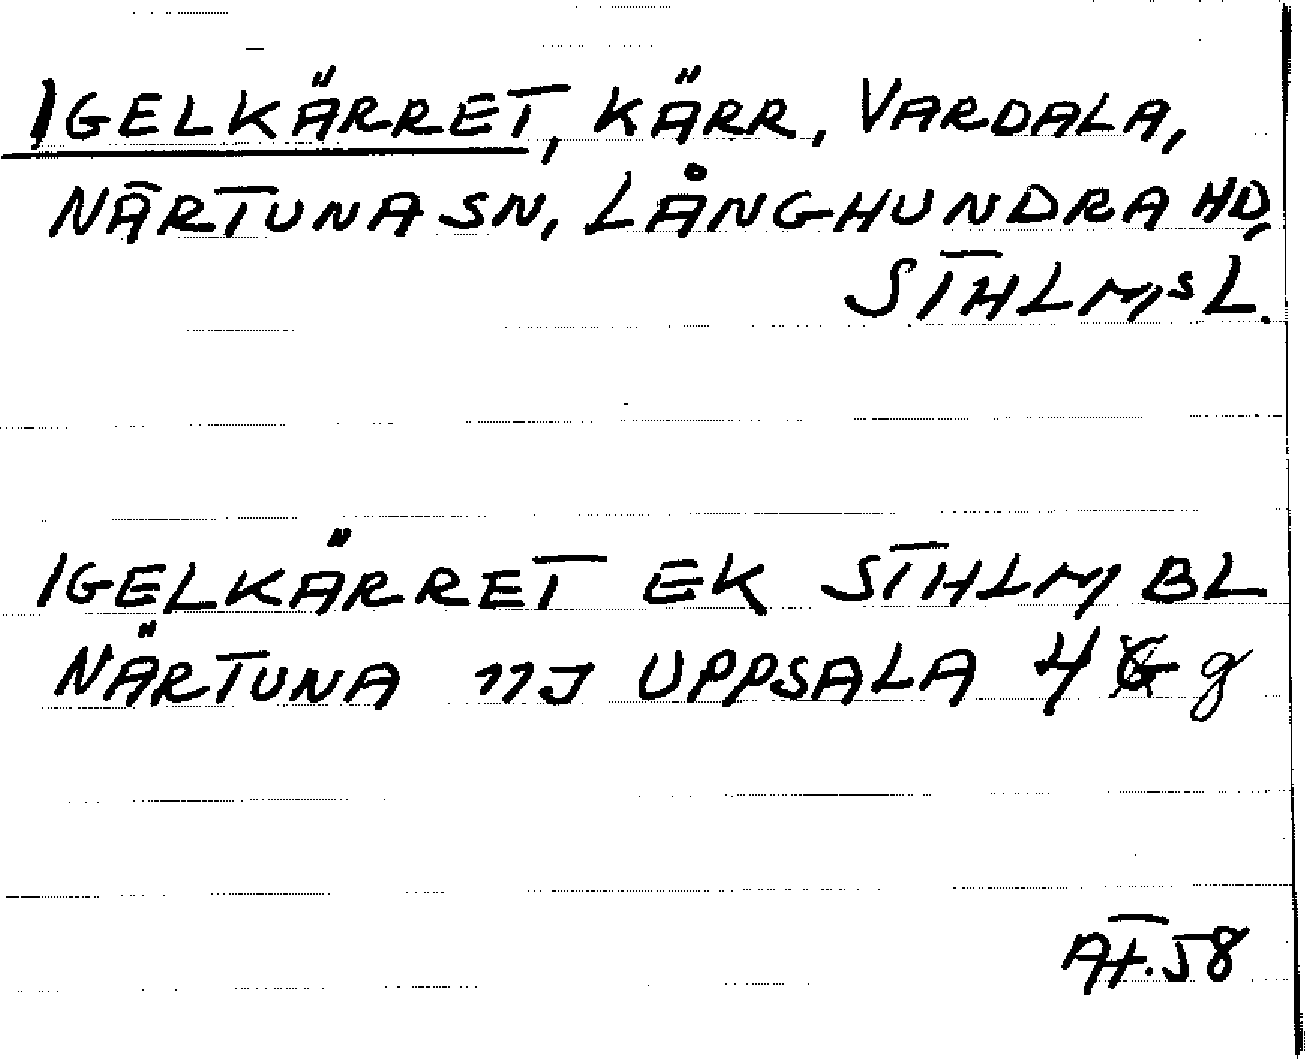 IGELKÄRRET, KÄRR, VARDALA,
NÄRTUNA SN, LÅNGHUNDRA HD,
STHLMS L.
IGELKÄRRET EK STHLM BL
NÄRTUNA 11J UPPSALA 4 g